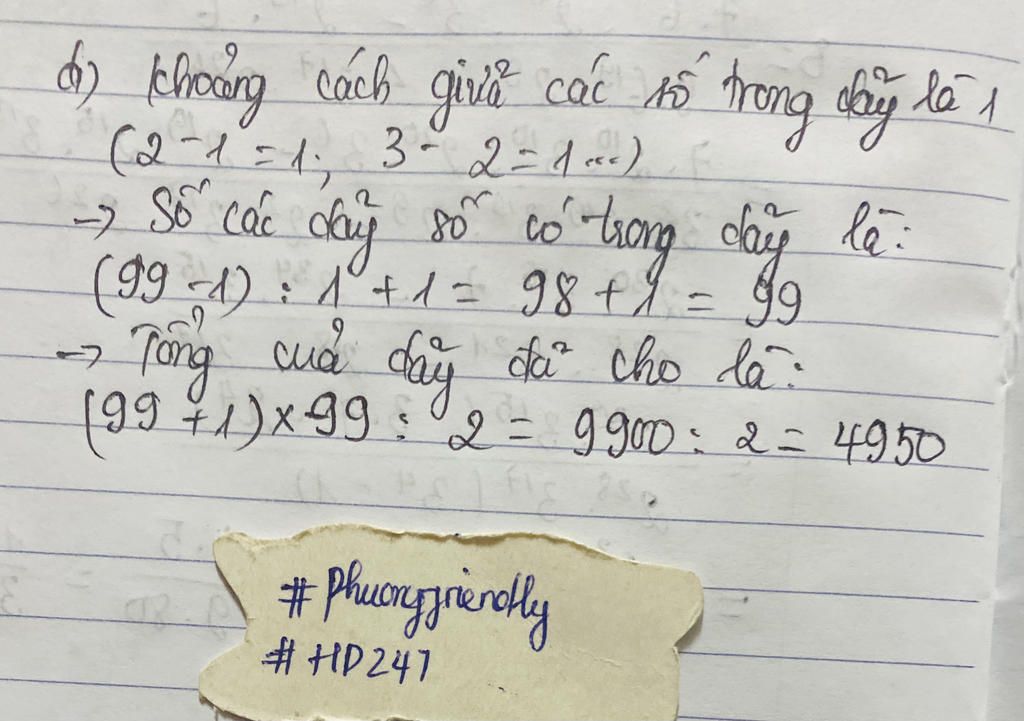 a) Khoảng cách giữa các số trong dãy là 1
(2 - 1 = 1; 3 - 2 = 1...)
→ Số các dãy số có trong dãy là:
(99 - 1) : 1 + 1 = 98 + 1 = 99
→ Tổng của dãy đã cho là:
(99 + 1) x 99 : 2 = 9900 : 2 = 4950
# Phuongfriendly
# HD247